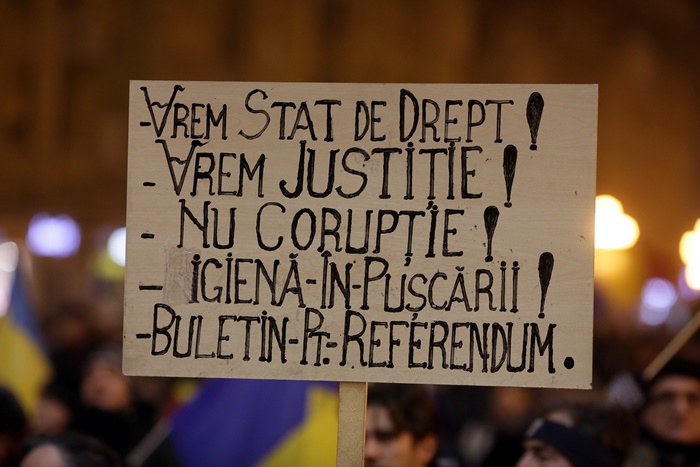 -VREM STAT DE DREPT!
- VREM JUSTIȚIE!
- NU CORUPȚIE!
- IGIENĂ-ÎN-PUȘCĂRII!
-BULETIN-PT.-REFERENDUM.